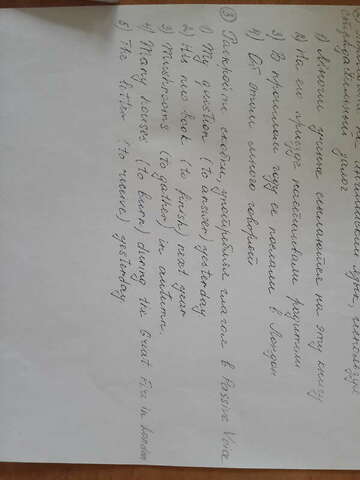 английский язык, используя
страдательный залог
1) Многие ученые ссылаются на эту книгу
2) На его приезде настаивали родители
3) В прошлом году ее послали в Лондон
4) Об этом много говорят
③ Раскройте скобки, употребляя глагол в Passive Voice
1) My question (to answer) yesterday
2) His new book (to finish) next year
3) Mushrooms (to gather) in autumn.
4) Many houses (to burn) during the Great Fire in London
5) The letter (to receive) yesterday